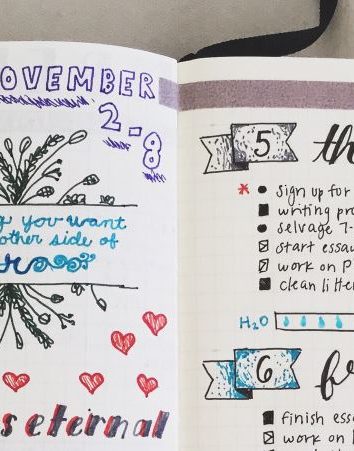 OVEMBER
2-8
you want
other side of
s eternal
5
th
* • sign up for
■ writing pro
• selvage 7-
☒ start essa
☒ work on P
■ clean litter
H2O
6
fr
■ finish ess
☒ work on